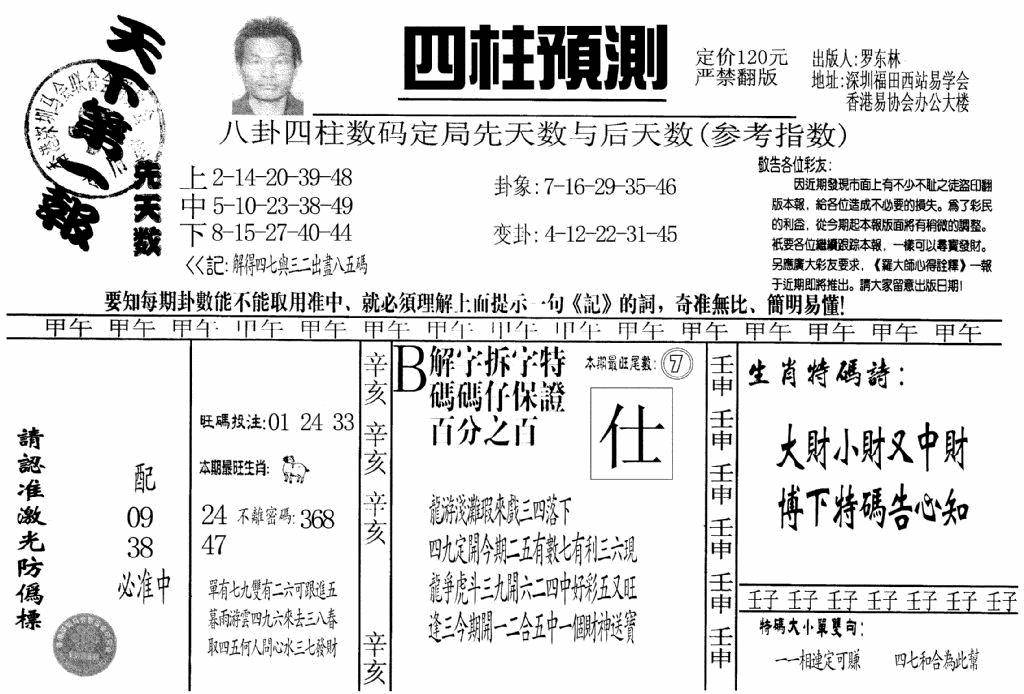 天下第一報
四柱預測
定价120元
严禁翻版
出版人:罗东林
地址:深圳福田西站易学会
香港易协会办公大楼
八卦四柱数码定局先天数与后天数(参考指数)
先天数
上2-14-20-39-48
中5-10-23-38-49
下8-15-27-40-44
<<記:解得四七與三二出盡八五碼
卦象:7-16-29-35-46
变卦:4-12-22-31-45
敬告各位彩友:
因近期發現市面上有不少不耻之徒盜印翻
版本報,給各位造成不必要的損失。為了彩民
的利益,從今期起本報版面將有稍微的調整。
衹要各位繼續跟踪本報,一樣可以尋寶發財。
另應廣大彩友要求,《羅大師心得詮釋》一報
于近期即將推出。請大家留意出版日期!
要知每期卦數能不能取用准中、就必須理解上面提示一句《記》的詞,奇准無比、簡明易懂!
甲午 甲午 甲午 甲午 甲午 甲午 甲午 甲午 甲午 甲午 甲午 甲午 甲午 甲午 甲午
請認准激光防僞標
配
09
38
必准中
旺碼投注:01 24 33
本期最旺生肖:
24 不離密碼:368
47
單有七九雙有二六可跟進五
暮雨游雲四九六來去三八春
取四五何人問心水三七發財
辛亥 辛亥 辛亥 辛亥
B解字拆字特
碼碼仔保證
百分之百
本期最旺尾數:7
仕
龍游淺灘瑕來戲三四落下
四九定開今期二五有數七有利三六現
龍爭虎斗三九開六二四中好彩五又旺
逢三今期開一二合五中一個財神送寶
壬申 壬申 壬申 壬申 壬申 壬申
生肖特碼詩:
大財小財又中財
博下特碼告心知
壬子 壬子 壬子 壬子 壬子 壬子 壬子
特碼大小單雙句:
一一相連定可賺 四七和合為此幫